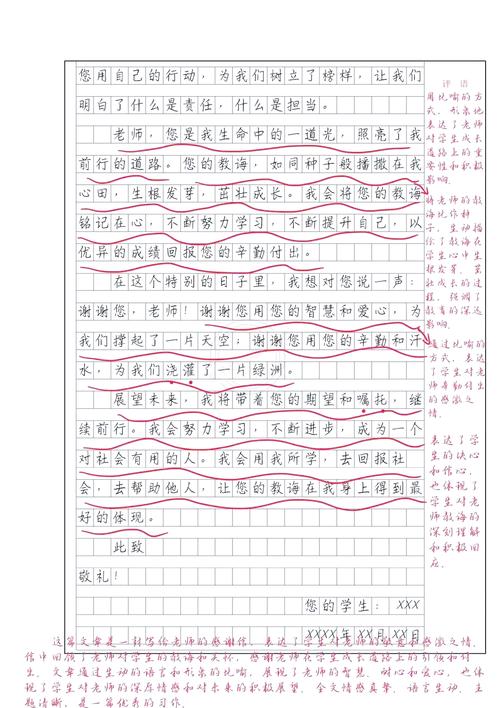 您用自己的行动，为我们树立了榜样，让我们
明白了什么是责任，什么是担当。
老师，您是我生命中的一道光，照亮了我
前行的道路。您的教诲，如同种子般播撒在我
心田，生根发芽，茁壮成长。我会将您的教诲
铭记在心，不断努力学习，不断提升自己，以
优异的成绩回报您的辛勤付出。
在这个特别的日子里，我想对您说一声：
谢谢您，老师！谢谢您用您的智慧和爱心，为
我们撑起了一片天空；谢谢您用您的辛勤和汗
水，为我们浇灌了一片绿洲。
展望未来，我将带着您的期望和嘱托，继
续前行。我会努力学习，不断进步，成为一个
对社会有用的人。我会用我所学，去回报社
会，去帮助他人，让您的教诲在我身上得到最
好的体现。
此致
敬礼！
您的学生：XXX
XXXX年XX月XX日
评语
用比喻的方
式，形象地
表达了老师
对学生成长
道路上的重
要性和积极
影响。
将老师的教
诲比作种
子，生动描
绘了教诲在
学生心中生
根发芽、茁
壮成长的过
程，强调了
教育的深远
影响。
通过比喻的
方式，表达
了学生对老
师辛勤付出
的感激之
情。
表达了学
生的决心
和信心，
也体现了
学生对老
师教诲的
深刻理解
和积极回
应。
这篇文章是一封写给老师的感谢信，表达了学生对老师的敬意和感激之情。
信中回顾了老师对学生的教诲和关怀，感谢老师在学生成长道路上的引领和付
出。文章通过生动的语言和形象的比喻，展现了老师的智慧、耐心和爱心，也体
现了学生对老师的深厚情感和对未来的积极展望。全文情感真挚，语言生动，主
题清晰，是一篇优秀的习作。